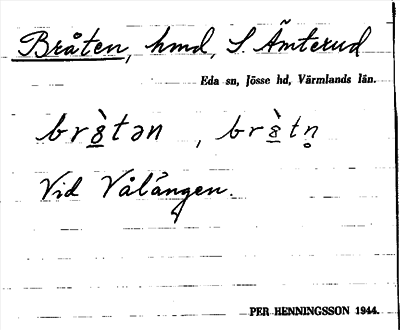 Bråten, hmd, S. Ämterud
Eda sn, Jösse hd, Värmlands län.
br8̲̀tən , br8̲̀tn̥
Vid Vålången.
PER HENNINGSSON 1944.